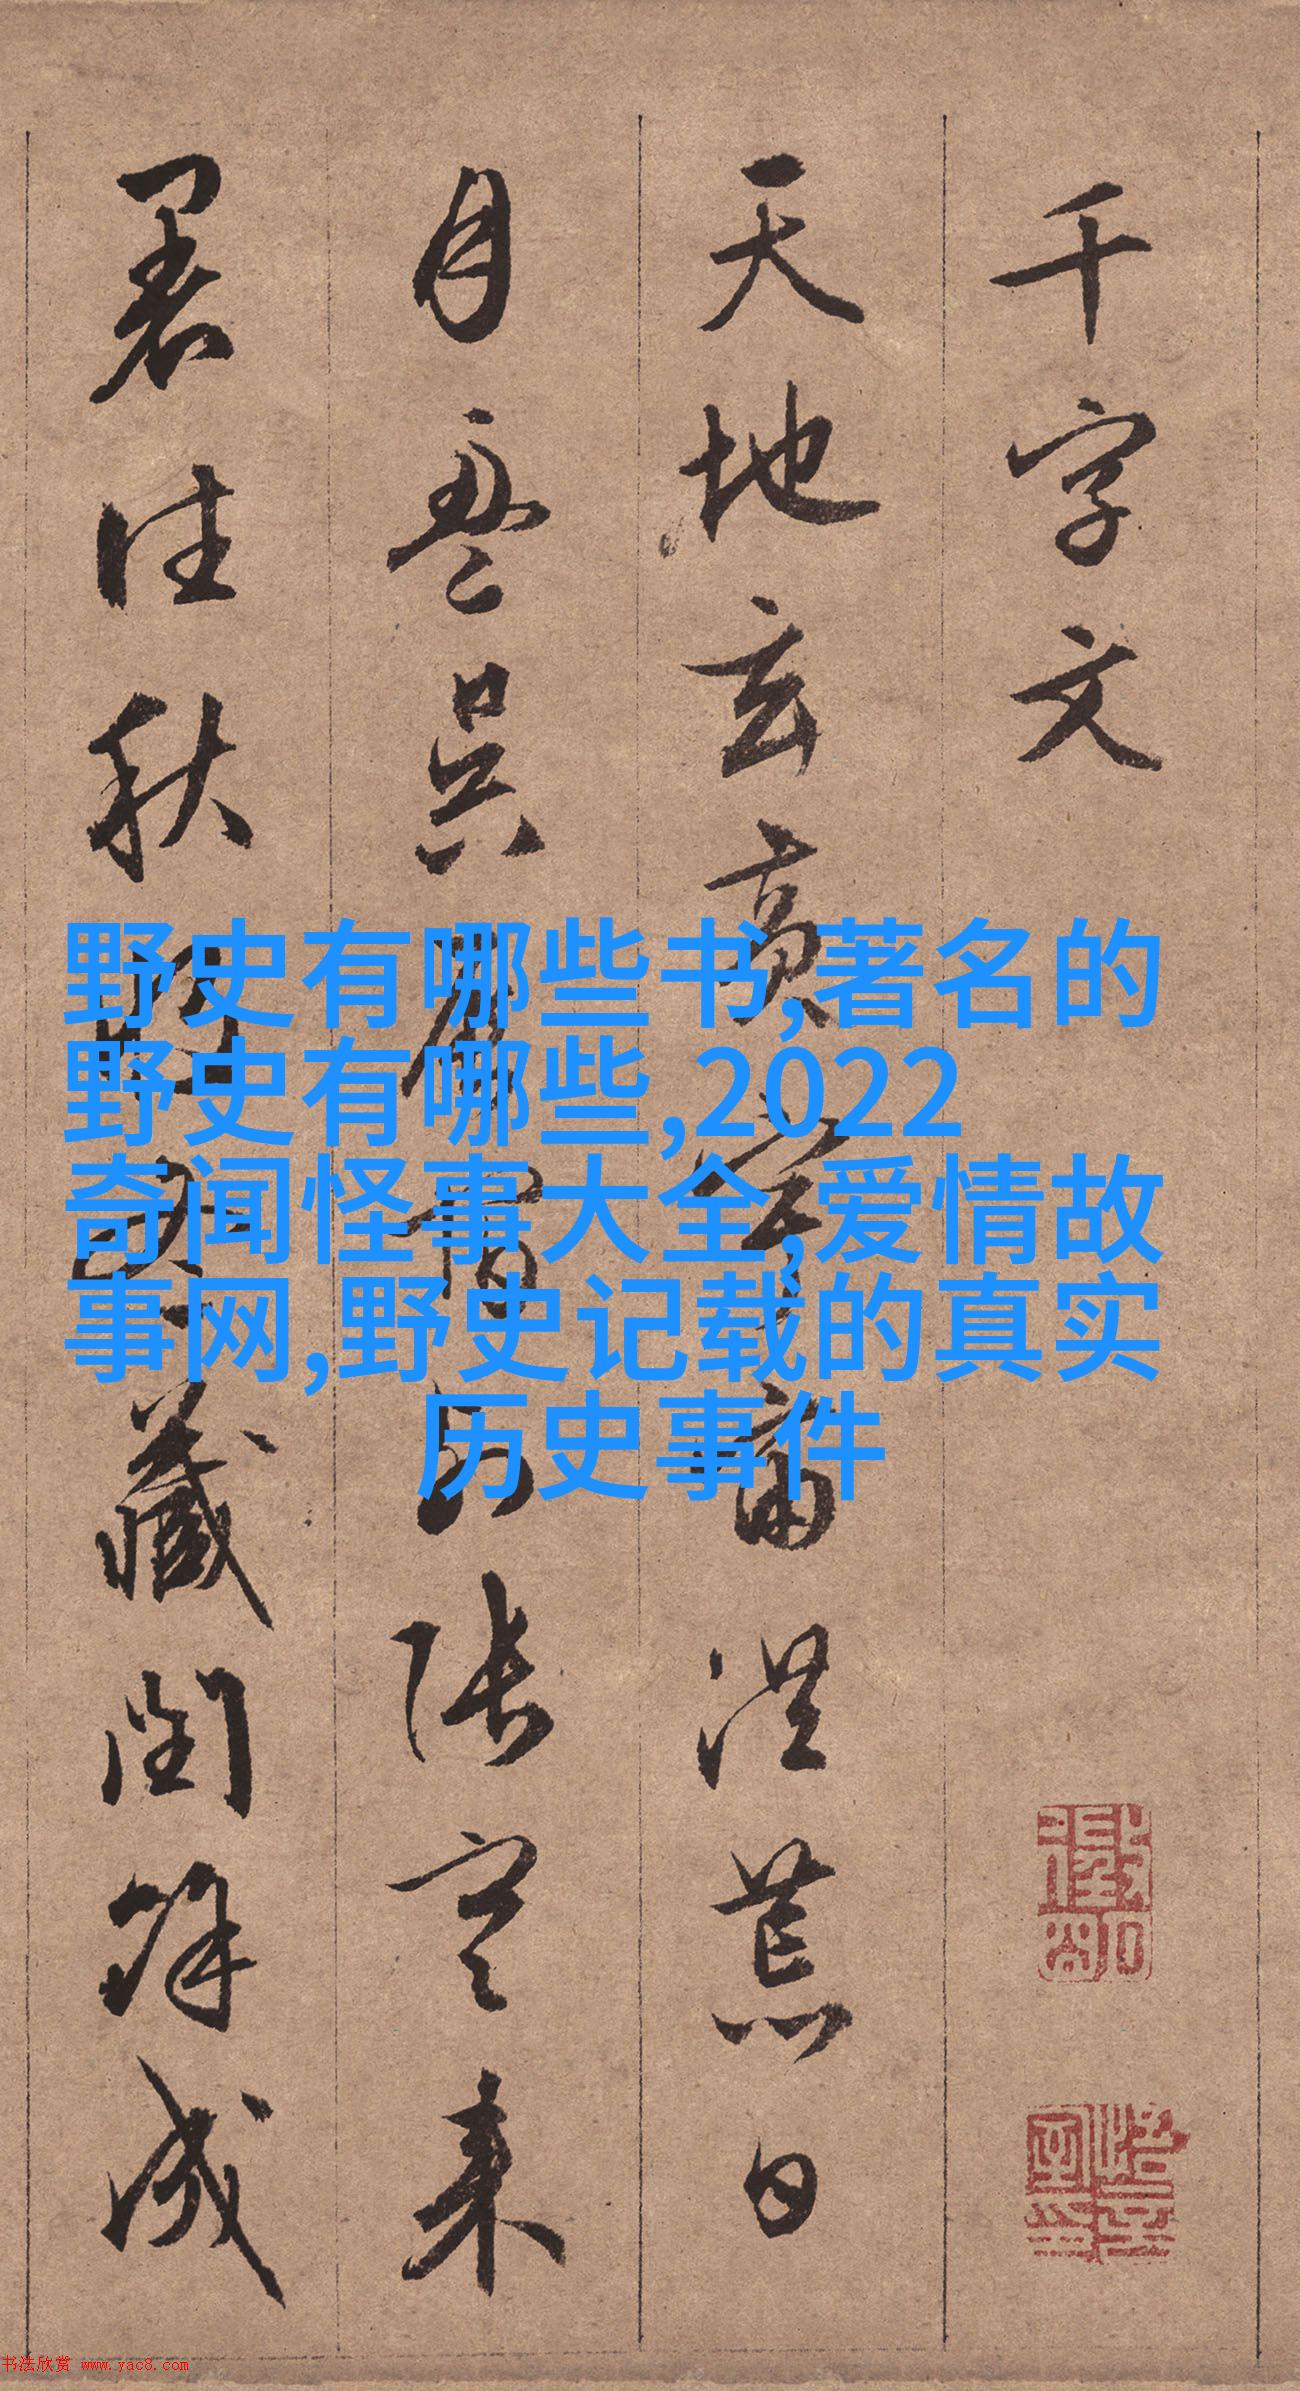 千字文
天地玄黃宇宙洪荒日
月盈昃辰宿列張寒來
暑往秋收冬藏閏餘成
野史有哪些书,著名的
野史有哪些,2022
奇闻怪事大全,爱情故
事网,野史记载的真实
历史事件
书法欣赏 www.yac8.com